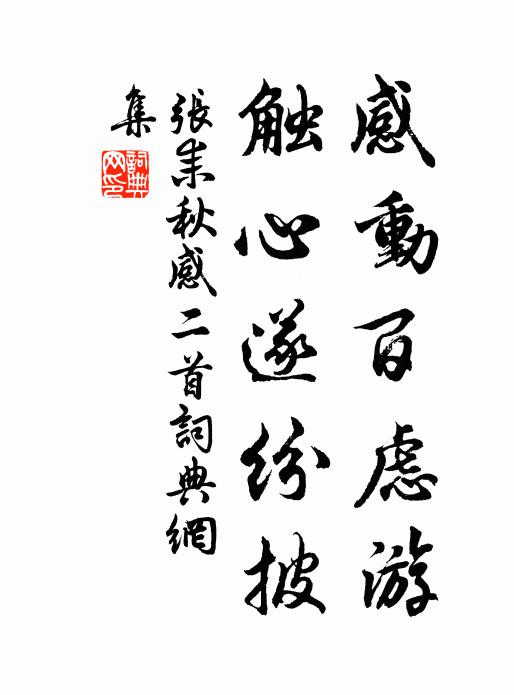 感動百慮游
触心遂纷披
張耒秋感二首詞典網
集
詞典
网印